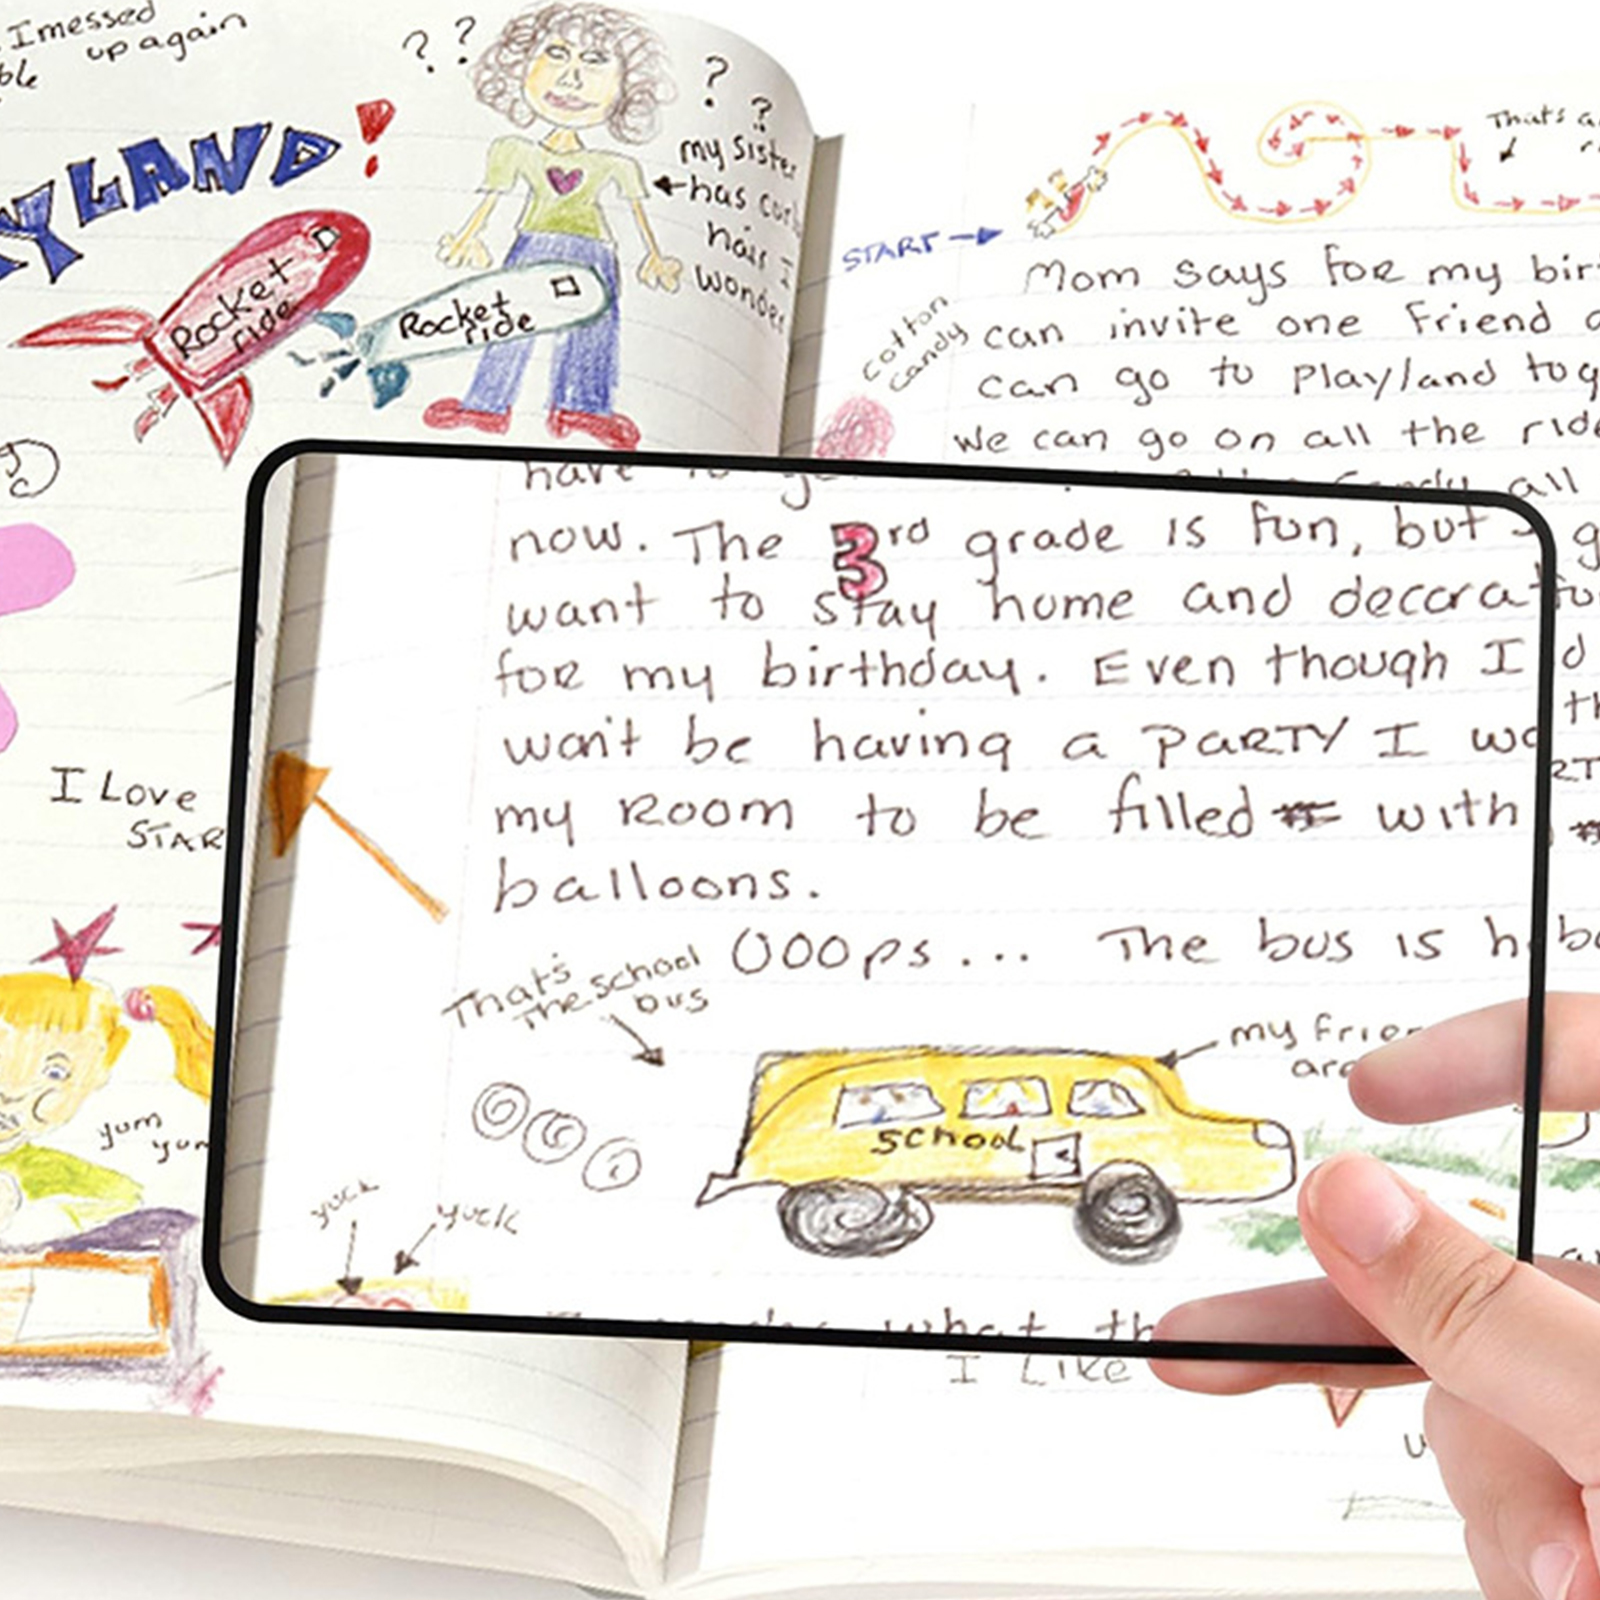 I messed
up again
YLAND!
? ?
? ?
my sister
has curl
hair I
wonder
Rocket
ride
Rocket
ride
I Love
STAR
yum
yum
That's a
START
cotton
candy
Mom says for my bir
can invite one friend
can go to Playland tog
We can go on all the ride
all
have to g
now. The 3rd grade is fun, but
want to stay home and decora
for my birthday. Even though I
won't be having a PARTY I wa
my Room to be filled with
balloons.
OOOps... The bus is h
That's
The school
bus
my frien
are
SCHOOL
yuck
yuck
what th
I Like